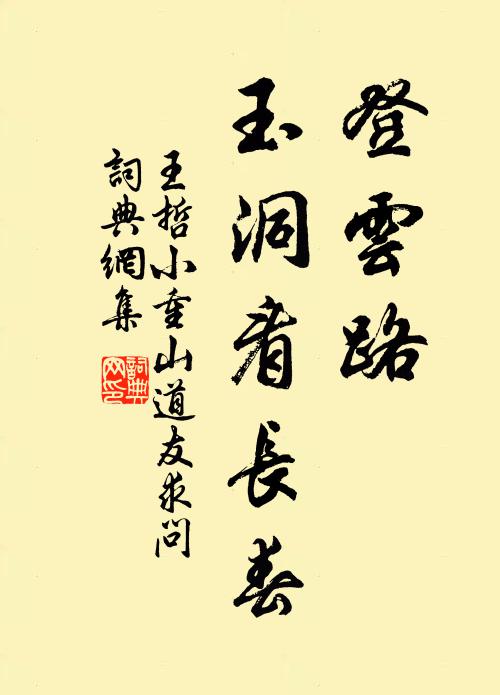 登雲路
玉洞看長春
王哲小重山道友求問
詞典網集
詞典網印